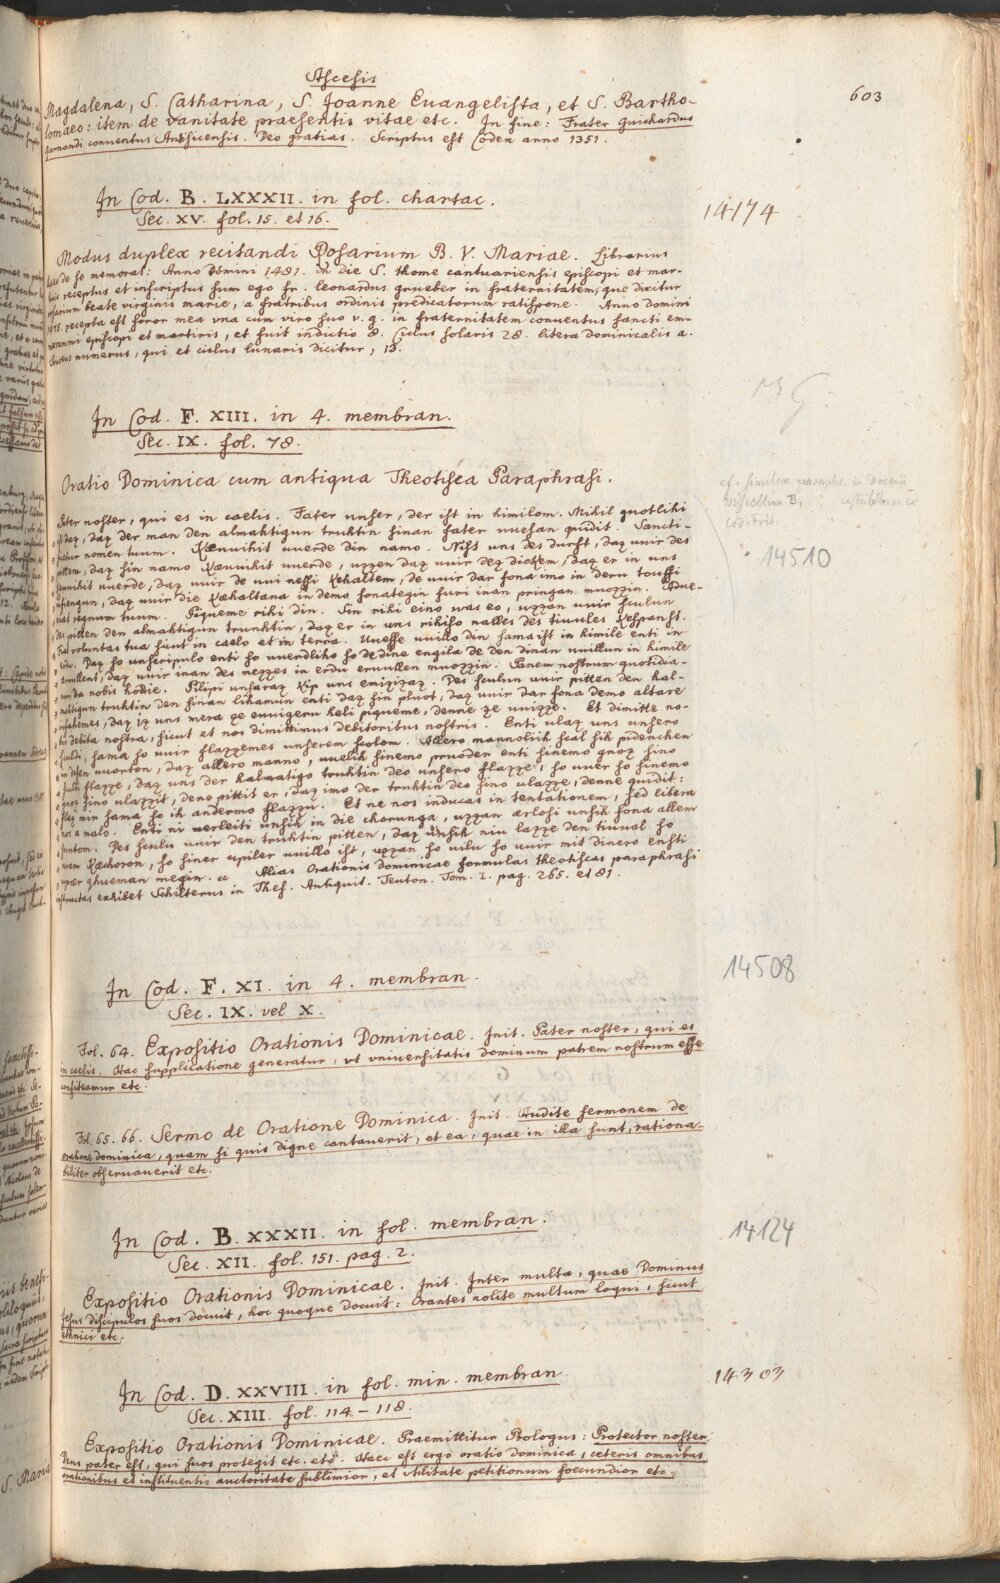 Ascesis
603
Magdalena, S. Catharina, S. Joanne Euangelista, et S. Bartho-
lomaeo: item de vanitate praesentis vitae etc. In fine: Frater Guichardus
conuentus Scriptus est Codex anno 1351.
In Cod. B. LXXXII. in fol. chartac.
Sec. XV. fol. 15. et 16.
14174
Modus duplex recitandi Rosarium B. V. Mariae. Librarius
de se memorat: Anno Domini 1481. in die S. thome cantuariensis episcopi et mar-
receptus et inscriptus sum ego fr. leonardus grueber in fraternitatem, que dicitur
rosarium beate virginis marie, a fratribus ordinis predicatorum ratispone. Anno domini
recepta est soror mea vna cum viro suo v. g. in fraternitatem conuentus sancti em-
merammi episcopi et martiris, et fuit indictio 8. Ciclus solaris 28. litera dominicalis a.
numerus, qui et ciclus lunaris dicitur, 13.
In Cod. F. XIII. in 4. membran.
Sec. IX. fol. 78.
Oratio Dominica cum antiqua Theotisca Paraphrasi.
14510
Pater noster, qui es in caelis. Fater unser, der ist in himilom. Mihil guotlihi
ist daz, daz der man den almahtigun truhtin sinan fater uuesan quidit. Sancti-
ficetur nomen tuum. Kæuuihit uuerde din namo. Nist uns des durft, daz uuir des
pittem, daz sin namo Kæuuihit uuerde, uzzan daz uuir dez dickem, daz er in uns
Kæuuihit uuerde, daz uuir de uui nessi Kehaltem, de uuir dar fona imo in deru touffi
infiengun, daz uuir die Kæhaltana in demo sonategin furi inan pringan muozzin. Adue-
niat regnum tuum. Piqueme rihi din. Sin rihi eino was eo, uzzan uuir sculun
des pitten den almahtigun truhtin, daz er in uns rihiso nalles des tiuules Kespanst.
Fiat voluntas tua sicut in caelo et in terra. Uuesse uuillo din sama ist in himile enti in
erdu. Daz so unscripulo enti so uuerdliho so dedine engila de den dinan uuillun in himile
eruullent, daz uuir inan des mezzes in erdu eruullen muozzin. Panem nostrum quotidia-
num da nobis hodie. Pilipi unsaraz Kip uns emizizaz. Des sculun uuir pitten den hal-
mahtigun truhtin den sinan lihamun enti daz sin pluot, daz uuir dar fona demo altare
infahemes, daz iz uns mera ze euuigeru heli piqueme, denne ze uuizze. Et dimitte no-
bis debita nostra, sicut et nos dimittimus debitoribus nostris. Enti ulaz uns unsero
sculdi, sama so uuir flazzemes unserem scolom. Allero mannolih scal sih pidenchen
in desen uuorton, daz allero manno, uuelih sinemo pruoder enti sinemo gnoz sino
sculdi flazze, daz uns der halmahtigo truhtin deo unsero flazze, so uuer so sinemo
gnoz sino ulazzit, dene pittit er, daz imo der truhtin deo sino ulazze, denne quidit:
flaz mir sama so ih andermo flazzu. Et ne nos inducas in tentationem, sed libera
nos a malo. Enti ni uerleiti unsih in die chorunga, uzzan ærlosi unsih fona allem
suntom. Des sculu uuir den truhtin pitten, daz unsih niu lazze den tiuual so
uram Kæchoron, so siner upiler uuillo ist, uzzan so uilu so uuir mit dinero ensti
upær ghueman megin. Alias Orationis dominicae formulas theotiscas paraphrasi
instructas exhibet Schilterus in Thes. Antiquit. Teuton. Tom. I. pag. 265. et 81.
In Cod. F. XI. in 4. membran.
Sec. IX. vel X.
14508
Fol. 64. Expositio Orationis Dominicae. Init. Pater noster, qui es
in caelis. Hac supplicatione generatur, vt vniuersitatis dominum patrem nostrum esse
confiteamur etc.
Fol. 65. 66. Sermo de Oratione Dominica. Init. Audite sermonem de
oratione dominica, quam si quis digne cantauerit, et ea, quae in illa sunt, rationa-
biliter obseruauerit etc.
In Cod. B. XXXII. in fol. membran.
Sec. XII. fol. 151. pag. 2.
14124
Expositio Orationis Dominicae. Init. Inter multa, quae Dominus
Jesus discipulos suos docuit, hoc quoque docuit: Orantes nolite multum loqui, sicut
ethnici etc.
In Cod. D. XXVIII. in fol. min. membran.
Sec. XIII. fol. 114-118.
14303
Expositio Orationis Dominicae. Praemittitur Prologus: Protector noster
Deus pater est, qui suos protegit etc. etc. Haec est ergo oratio dominica, ceteris omnibus
orationibus et instituentis auctoritate sublimior, et vtilitate petitionum foecundior etc.